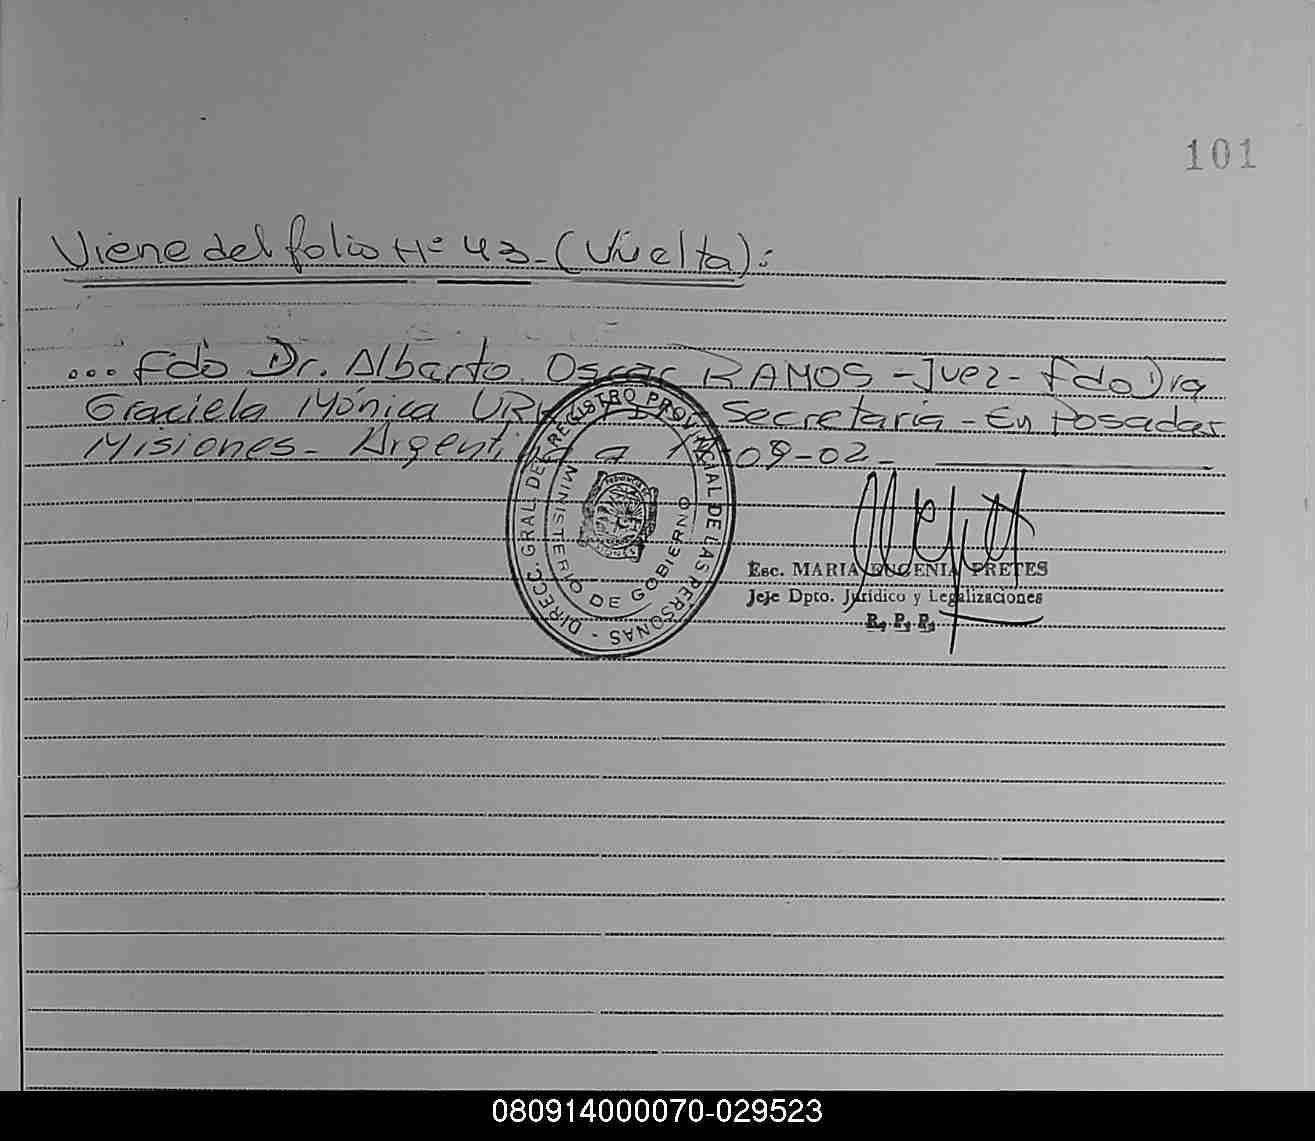 101
Viene del folio Nº 43-(Vuelta):
... Fdo Dr. Alberto Oscar RAMOS - Juez - Fdo Dra
Graciela Mónica Secretaria - En Posadas
Misiones - a 09-02-
DIRECC. GRAL. DEL REGISTRO PROVINCIAL DE LAS PERSONAS -
MINISTERIO DE GOBIERNO
Esc. MARIA EUGENIA PRETES
Jefe Dpto. Jurídico y Legalizaciones
R. P. P.
080914000070-029523